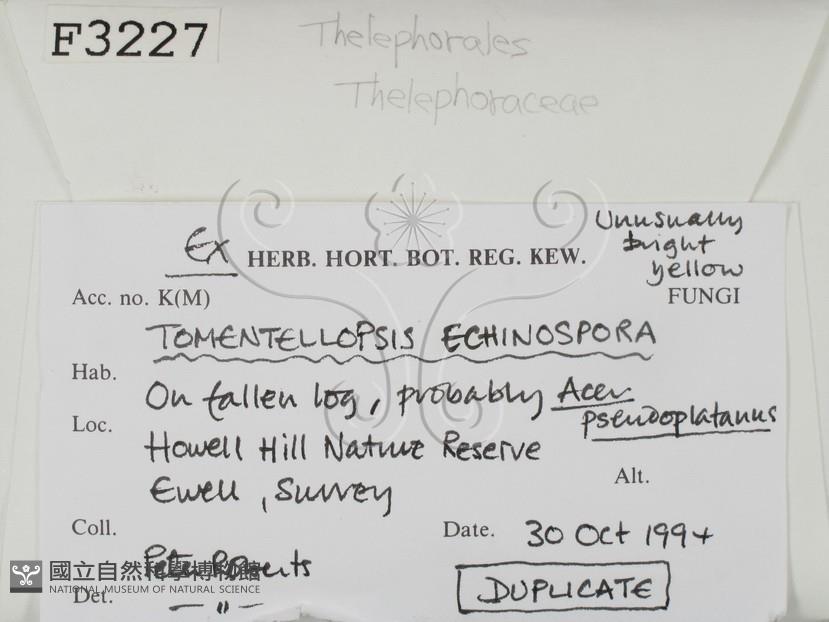 F3227
Thelephorales
Thelephoraceae
Ex HERB. HORT. BOT. REG. KEW.
Unusually
bright
yellow
Acc. no. K(M)
FUNGI
TOMENTELLOPSIS ECHINOSPORA
Hab.
On fallen log, probably Acer
pseudoplatanus
Loc.
Howell Hill Nature Reserve
Ewell, Surrey
Alt.
Coll.
Date. 30 Oct 1994
Peter Roberts
國立自然科學博物館
NATIONAL MUSEUM OF NATURAL SCIENCE
Det. — " —
DUPLICATE